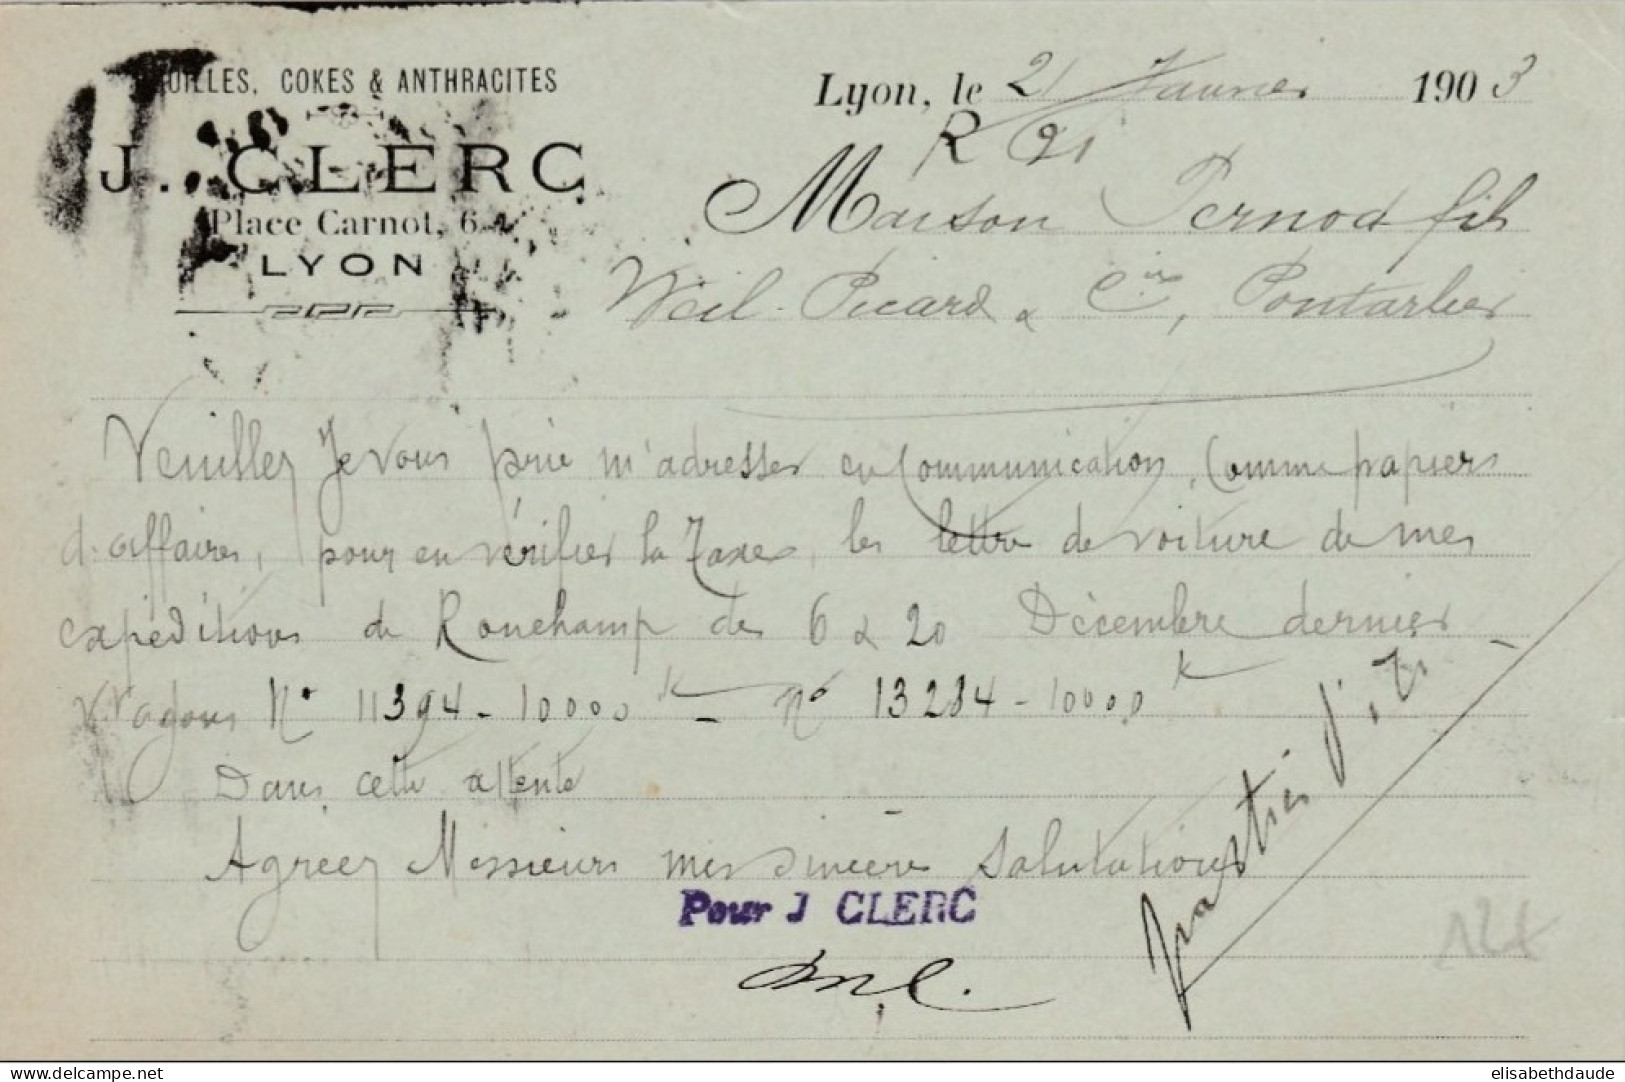 OUILLES, COKES & ANTHRACITES
J. CLERC
Place Carnot, 6
LYON
Lyon, le 21 Janvier 1903
R 21
Maison Pernod fils
Weil-Picard & Cie, Pontarlier
Veuillez je vous prie m'adresser en communication, comme papiers
d'affaires, pour en vérifier la taxe, les lettre de voiture de mes
expéditions de Ronchamp des 6 & 20 Décembre dernier
Wagons N° 11394 - 10000 k - N° 13284 - 10000 k
Dans cette attente
Agréez Messieurs mes sincères salutations
Pour J CLERC
www.delcampe.net
elisabethdaude